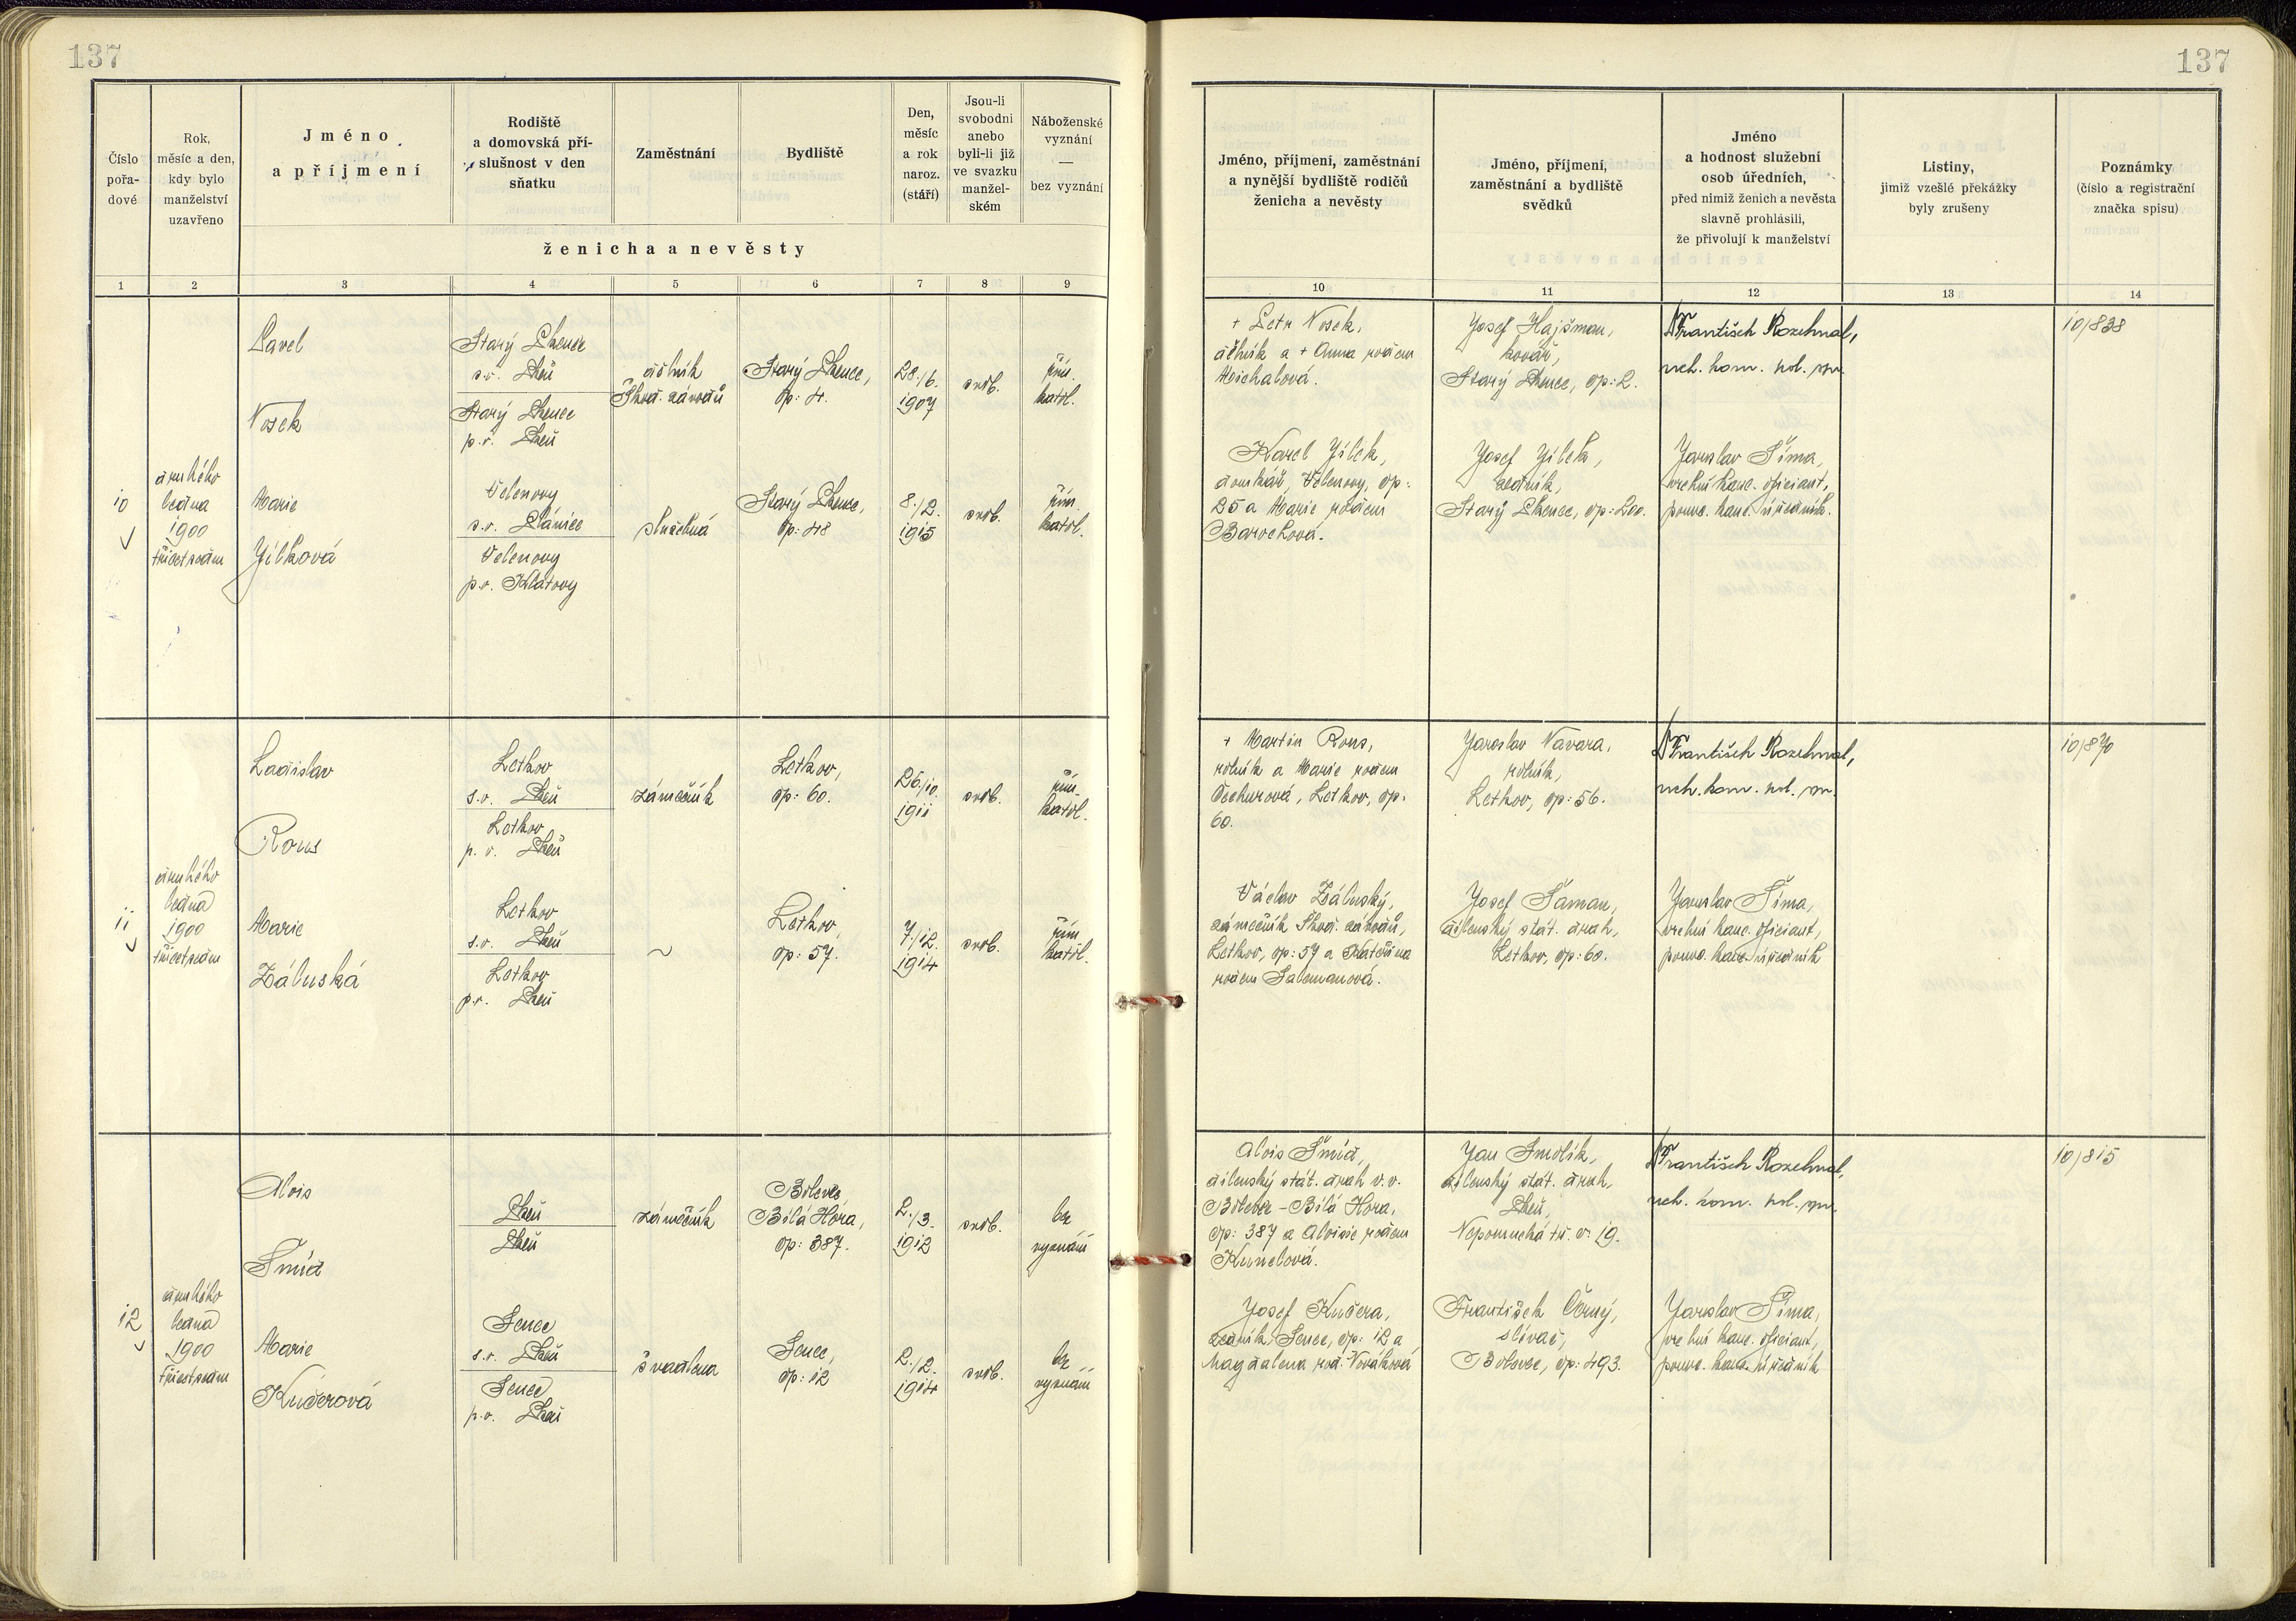 137
137
Číslo
pořa-
dové
Rok,
měsíc a den,
kdy bylo
manželství
uzavřeno
Jméno
a příjmení
Rodiště
a domovská pří-
slušnost v den
sňatku
Zaměstnání
Bydliště
Den,
měsíc
a rok
naroz.
(stáří)
Jsou-li
svobodni
anebo
byli-li již
ve svazku
manžel-
ském
Náboženské
vyznání
—
bez vyznání
ženicha a nevěsty
Jméno, příjmení, zaměstnání
a nynější bydliště rodičů
ženicha a nevěsty
Jméno, příjmení,
zaměstnání a bydliště
svědků
Jméno
a hodnost služební
osob úředních,
před nimiž ženich a nevěsta
slavně prohlásili,
že přivolují k manželství
Listiny,
jimiž vzešlé překážky
byly zrušeny
Poznámky
(číslo a registrační
značka spisu)
1 2 3 4 5 6 7 8 9 10 11 12 13 14
10
druhého
ledna
1900
třicetsedm
Pavel
Nosek
Starý Plzenec
s.o. Plzeň
Starý Plzenec
p.o. Plzeň
dělník
Škod. závodů
Starý Plzenec,
čp: 4.
28./6.
1907
svob.
řím.
katol.
Marie
Jílková
Velenovy
s.o. Plánice
Velenovy
p.o. Klatovy
služebná
Starý Plzenec,
čp: 48
8./2.
1915
svob.
řím.
katol.
+ Petr Nosek,
dělník a + Anna rodem
Michalová.
Josef Hajšman,
kovář,
Starý Plzenec, čp: 2.
František Rozehnal,
rch. kom. pol. spr.
10/838
Karel Jílek,
domkář, Velenovy, čp:
25 a Marie rodem
Barochová.
Josef Jílek,
zedník,
Starý Plzenec, čp: 200.
Jaroslav Šíma,
vrchní kanc. oficiant,
pomoc. kanc. úředník.
11
druhého
ledna
1900
třicetsedm
Ladislav
Rous
Letkov
s.o. Plzeň
Letkov
p. o. Plzeň
zámečník
Letkov,
čp: 60.
26./10.
1911
svob.
řím.
katol.
Marie
Záluská
Letkov
s.o. Plzeň
Letkov
p.o. Plzeň
~
Letkov,
čp: 57.
7./12.
1914
svob.
řím.
katol.
+ Martin Rous,
rolník a Marie rodem
Čechurová, Letkov, čp:
60.
Jaroslav Vavora,
rolník,
Letkov, čp: 56.
František Rozehnal,
rch. kom. pol. spr.
10/870
Václav Záluský,
zámečník Škod. závodů,
Letkov, čp: 57 a Kateřina
rodem Salcmanová.
Josef Šaman,
dílenský stát. drah,
Letkov, čp: 60.
Jaroslav Šíma,
vrchní kanc. oficiant,
pomoc. kanc. úředník
12
druhého
ledna
1900
třicetsedm
Alois
Šmíd
Plzeň
Plzeň
zámečník
Bolevec
Bílá Hora,
čp: 387.
2./3.
1912
svob.
bez
vyznání
Marie
Kučerová
Senec
s.o. Plzeň
Senec
p.o. Plzeň
švadlena
Senec,
čp: 12
2./2.
1914
svob.
bez
vyznání
Alois Šmíd,
dílenský stát. drah v.v.
Bolevec – Bílá Hora,
čp: 387 a Aloisie rodem
Kunclová.
Jan Smolík,
dílenský stát. drah,
Plzeň,
Nepomucká tř. č: 19.
František Rozehnal,
rch. kom. pol. spr.
10/815
Josef Kučera,
zedník Senec, čp: 12 a
Magdalena rod. Nováková
František Černý,
slévač,
Bolevec, čp: 493.
Jaroslav Šíma,
vrchní kanc. oficiant,
pomoc. kanc. úředník